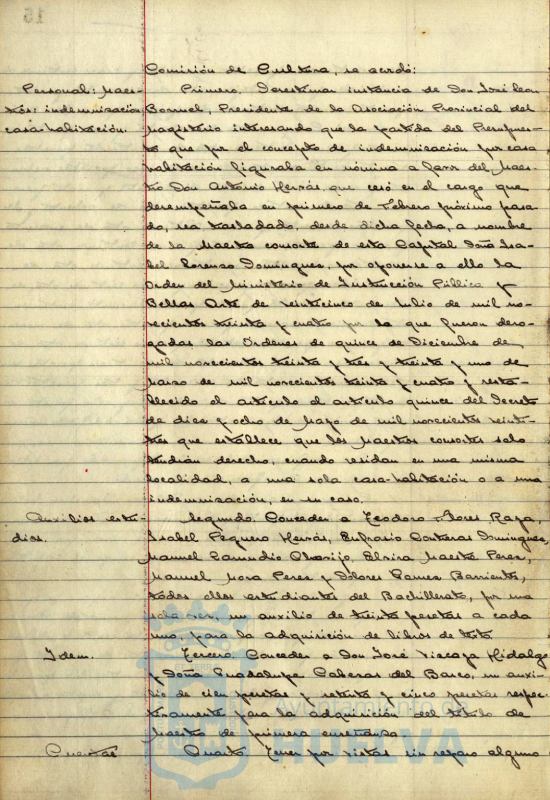 15
Comisión de Cultura, se acordó:
Personal: Maes-
tros: indemnización
casa-habitación.
Primero. Desestimar instancia de Don José Leon
Borruel, Presidente de la Asociación Provincial del
Magisterio interesando que la partida del Presupues-
to que por el concepto de indemnización por casa
habitación figuraba en nómina a favor del Maes-
tro Don Antonio Hervás, que cesó en el cargo que
desempeñaba en primero de Febrero próximo pasa-
do, sea trasladado, desde dicha fecha, a nombre
de la Maestra consorte de esta Capital Doña Isa-
bel Lorenzo Domínguez, por oponerse a ello la
Orden del Ministerio de Instrucción Pública y
Bellas Artes de veinticinco de Julio de mil no-
vecientos treinta y cuatro por la que fueron dero-
gadas las Ordenes de quince de Diciembre de
mil novecientos treinta y tres y treinta y uno de
Marzo de mil novecientos treinta y cuatro y resta-
blecido el artículo el artículo quince del Decreto
de diez y ocho de Mayo de mil novecientos veinti-
tres que establece que los Maestros consortes solo
tendrán derecho, cuando residan en una misma
localidad, a una sola casa-habitación o a una
indemnización, en su caso.
Auxilios estu-
dios.
Segundo. Conceder a Teodoro Flores Raya,
Isabel Peguero Hervás, Eufrasio Contreras Domínguez,
Manuel Zamudio Elvira Maestre Perez,
Manuel Mora Perez y Dolores Gamez Barrientos,
todos ellos estudiantes del Bachillerato, por una
sola vez, un auxilio de treinta pesetas a cada
uno, para la adquisición de libros de texto
Idem.
Tercero. Conceder a Don José Vizcaya Hidalgo
y Doña Guadalupe Cabezas del Barco, un auxi-
lio de cien pesetas y setenta y cinco pesetas respec-
tivamente para la adquisición del título de
Maestro de primera enseñanza.
Cuentas
Cuarto. Tener por vistas sin reparo alguno
Ayuntamiento de
HUELVA